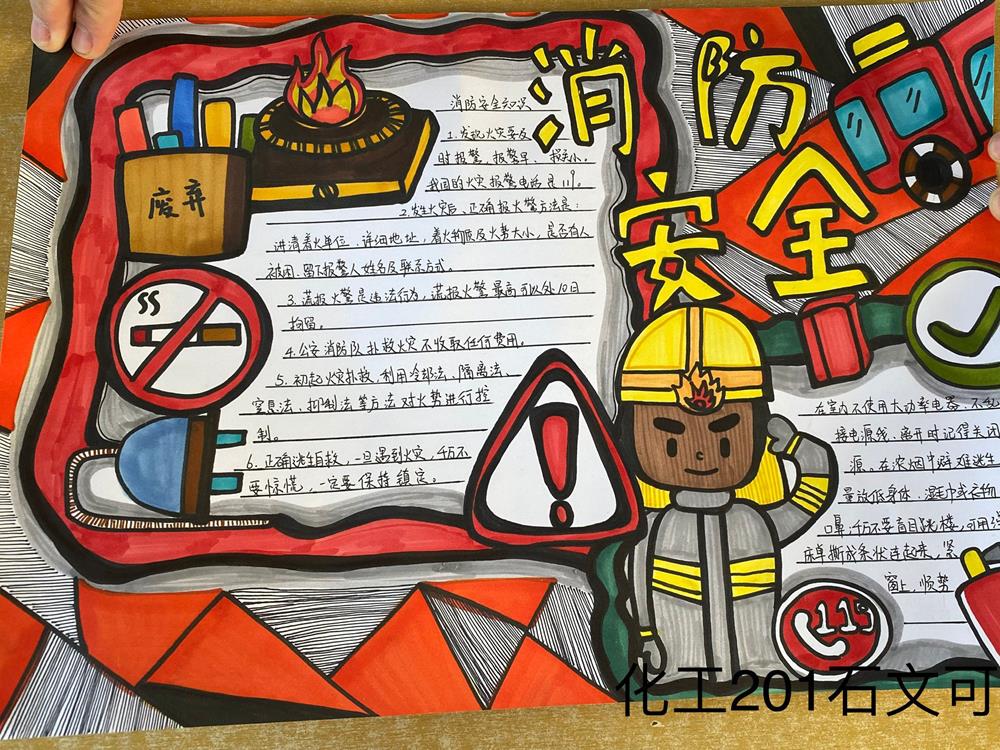 消防
安全
废弃
消防安全知识
1.发现火灾要及
时报警,报警早、损失小。
我国的火灾报警电话是119。
2.发生火灾后,正确报火警方法是:
讲清着火单位、详细地址、着火物质及火势大小,是否有人
被困、留下报警人姓名及联系方式。
3.谎报火警是违法行为,谎报火警最高可以处10日
拘留。
4.公安消防队扑救火灾不收取任何费用。
5.初起火灾扑救,利用冷却法、隔离法、
窒息法、抑制法等方法对火势进行控
制。
6.正确逃生自救,一旦遇到火灾,千万不
要惊慌,一定要保持镇定。
在室内不使用大功率电器、不乱
接电源线、离开时记得关闭
源。在浓烟中避难逃生
量放低身体、湿毛巾或衣物
口鼻;千万不要盲目跳楼,可用
床单撕成条状连起来,紧
窗上,顺势
119
化工201石文可